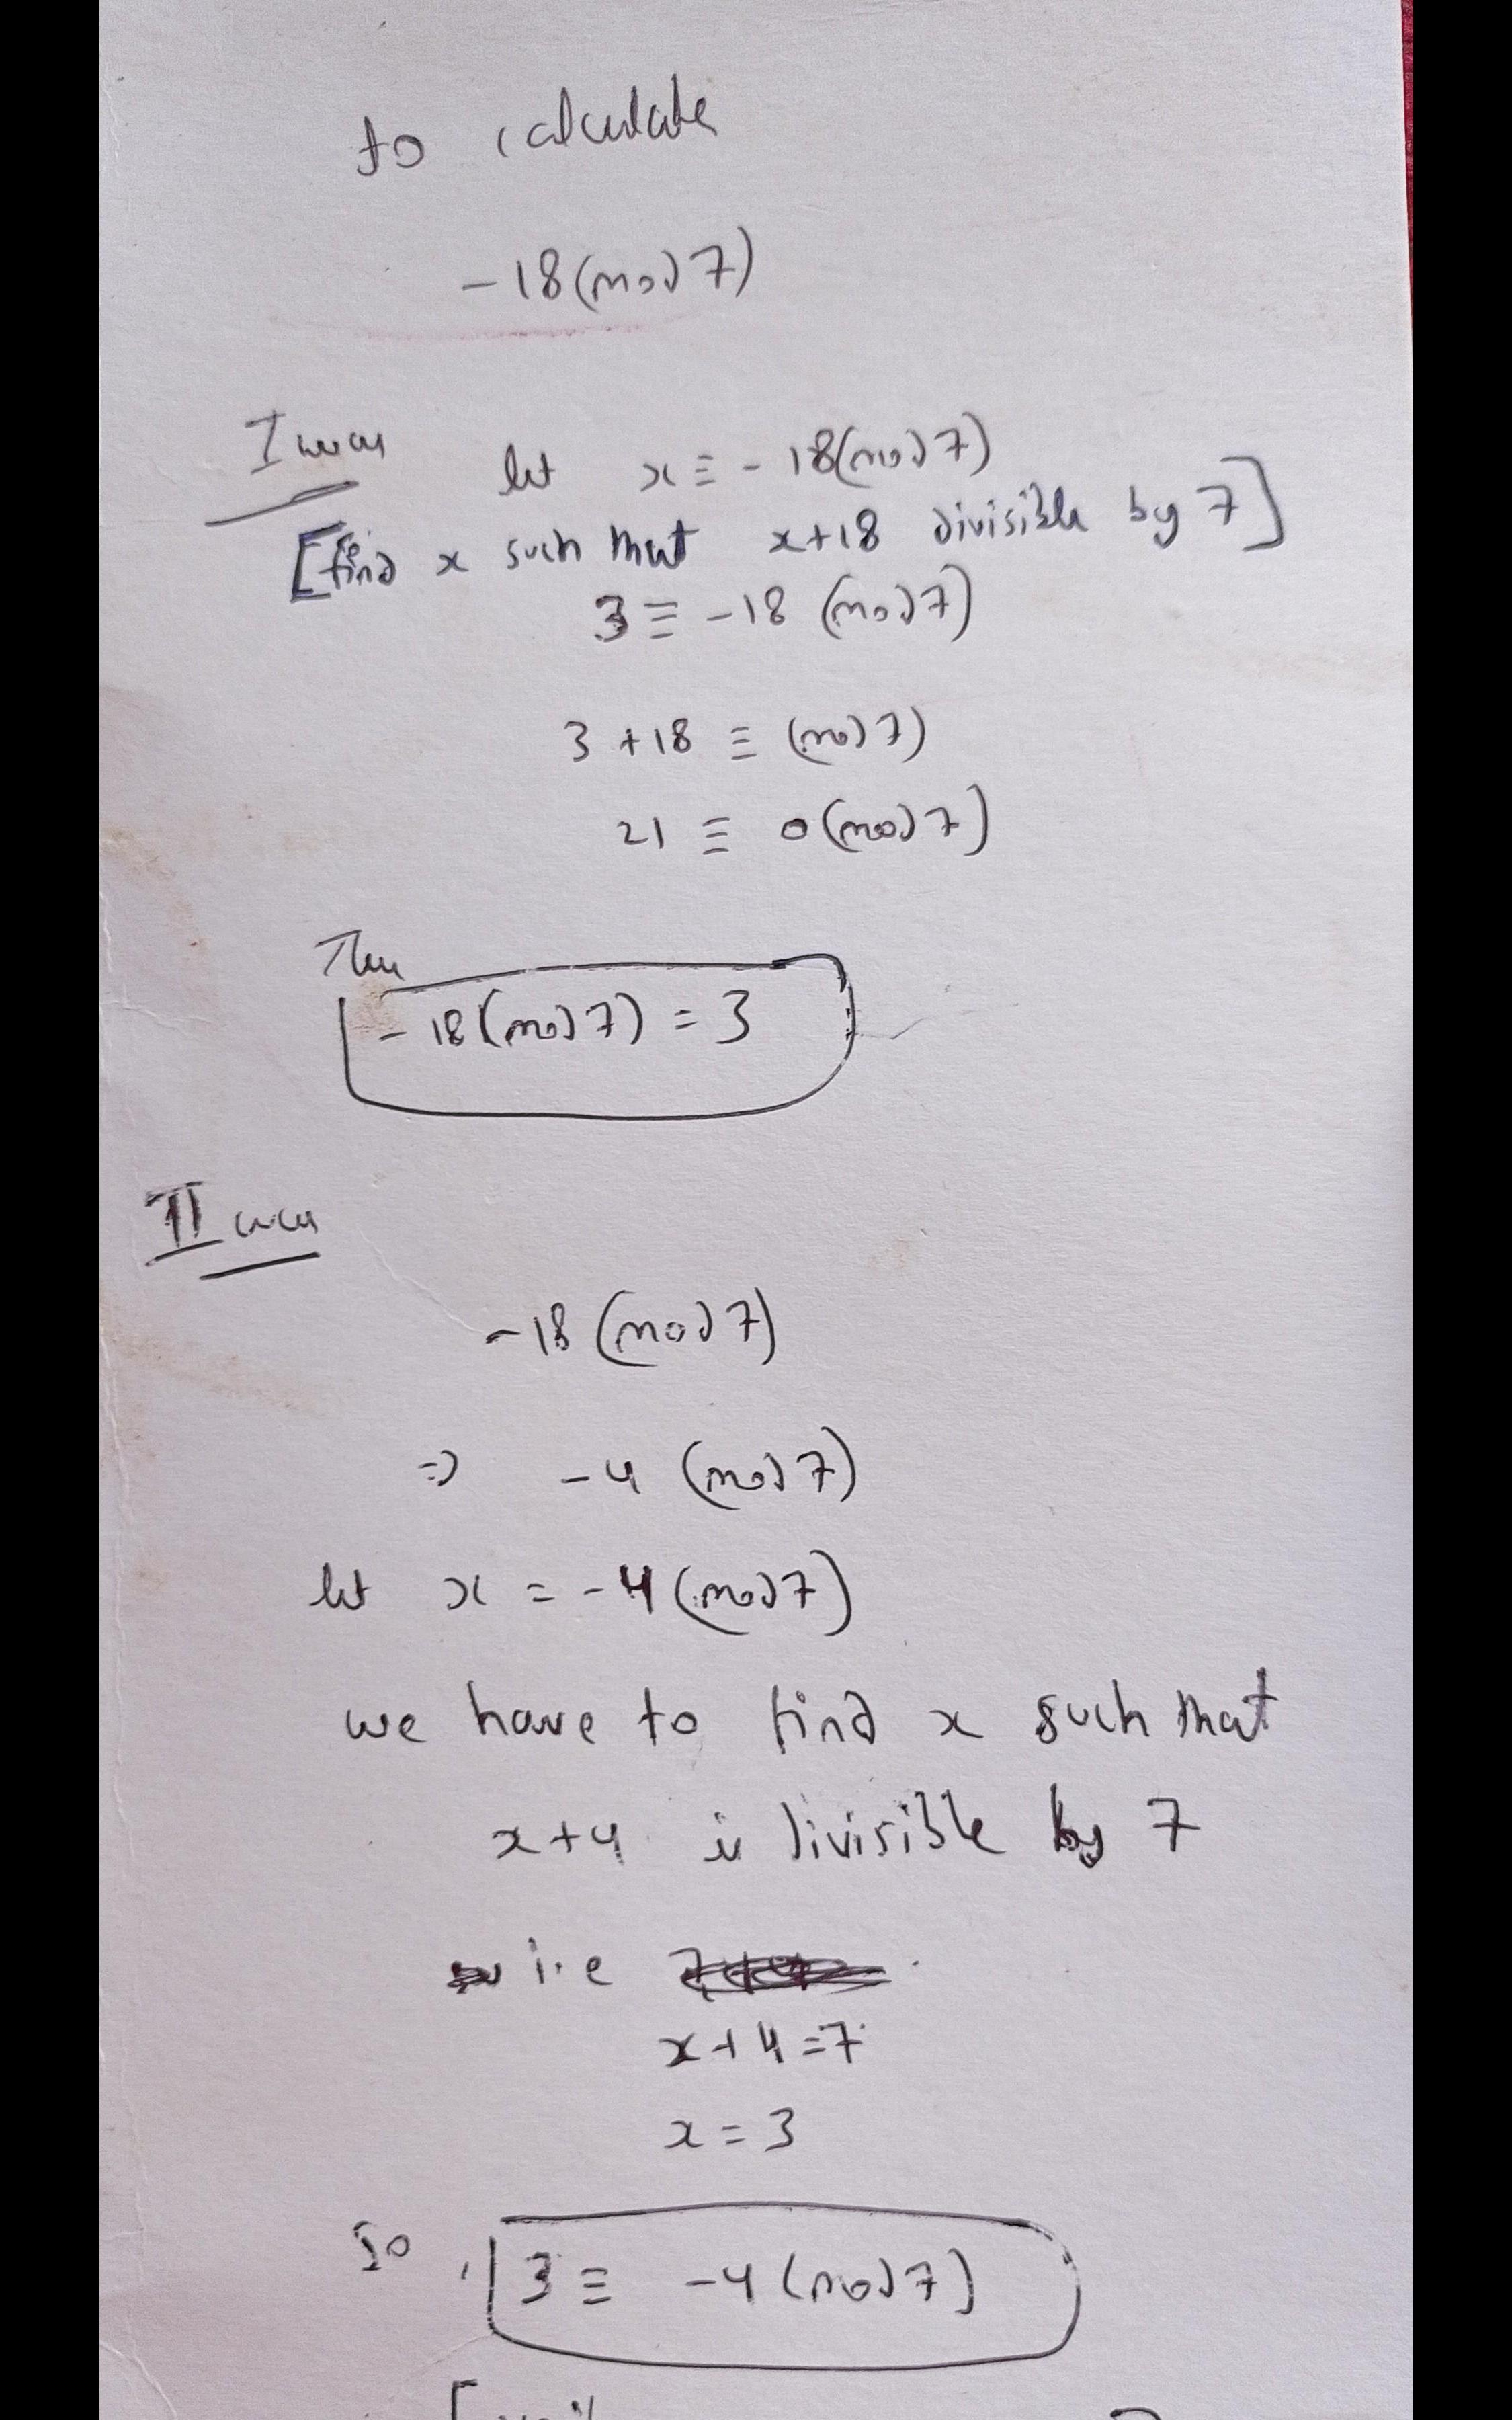 to calculate
-18(mod 7)
I way let x ≡ -18(mod 7)
[find x such that x+18 divisible by 7]
3 ≡ -18 (mod 7)
3 +18 ≡ (mod 7)
21 ≡ 0(mod 7)
Then
-18(mod 7) = 3
II way
-18 (mod 7)
⇒ -4 (mod 7)
let x = -4 (mod 7)
we have to find x such that
x+4 is divisible by 7
i.e
x+4=7
x=3
So, 3 ≡ -4 (mod 7)